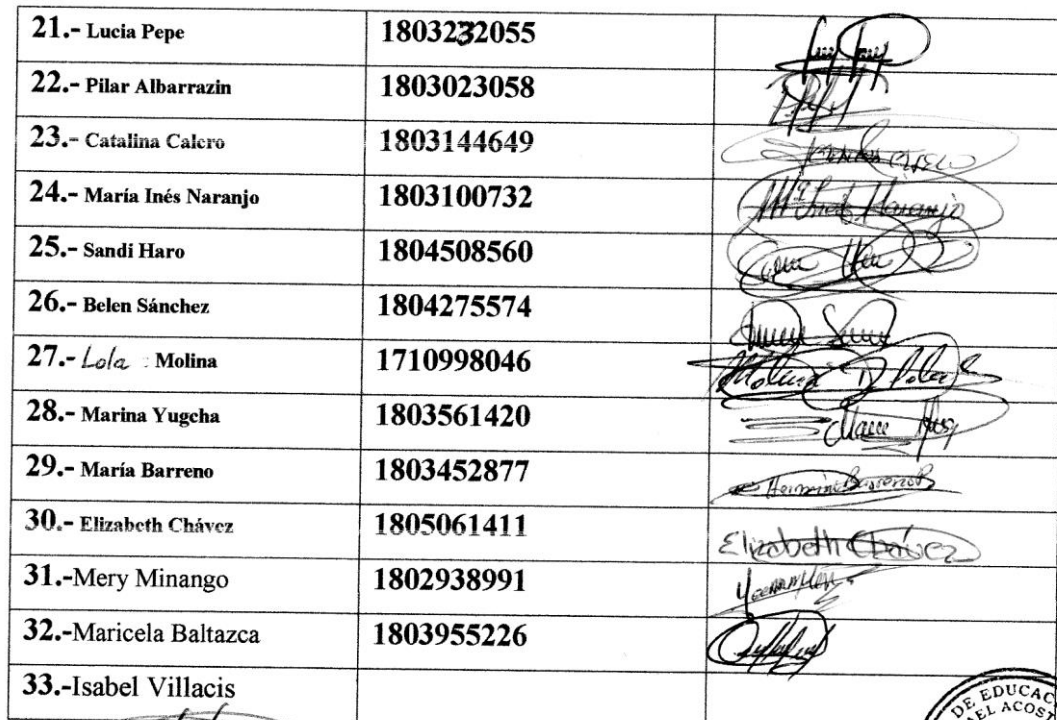 21.- Lucia Pepe 1803232055
22.- Pilar Albarrazin 1803023058
23.- Catalina Calero 1803144649
24.- María Inés Naranjo 1803100732 Mª Inés Naranjo
25.- Sandi Haro 1804508560
26.- Belen Sánchez 1804275574
27.- Lola Molina 1710998046 Molina D Lola
28.- Marina Yugcha 1803561420
29.- María Barreno 1803452877
30.- Elizabeth Chávez 1805061411 Elizabeth Chávez
31.-Mery Minango 1802938991
32.-Maricela Baltazca 1803955226
33.-Isabel Villacis
DE EDUCAC
EL ACOST